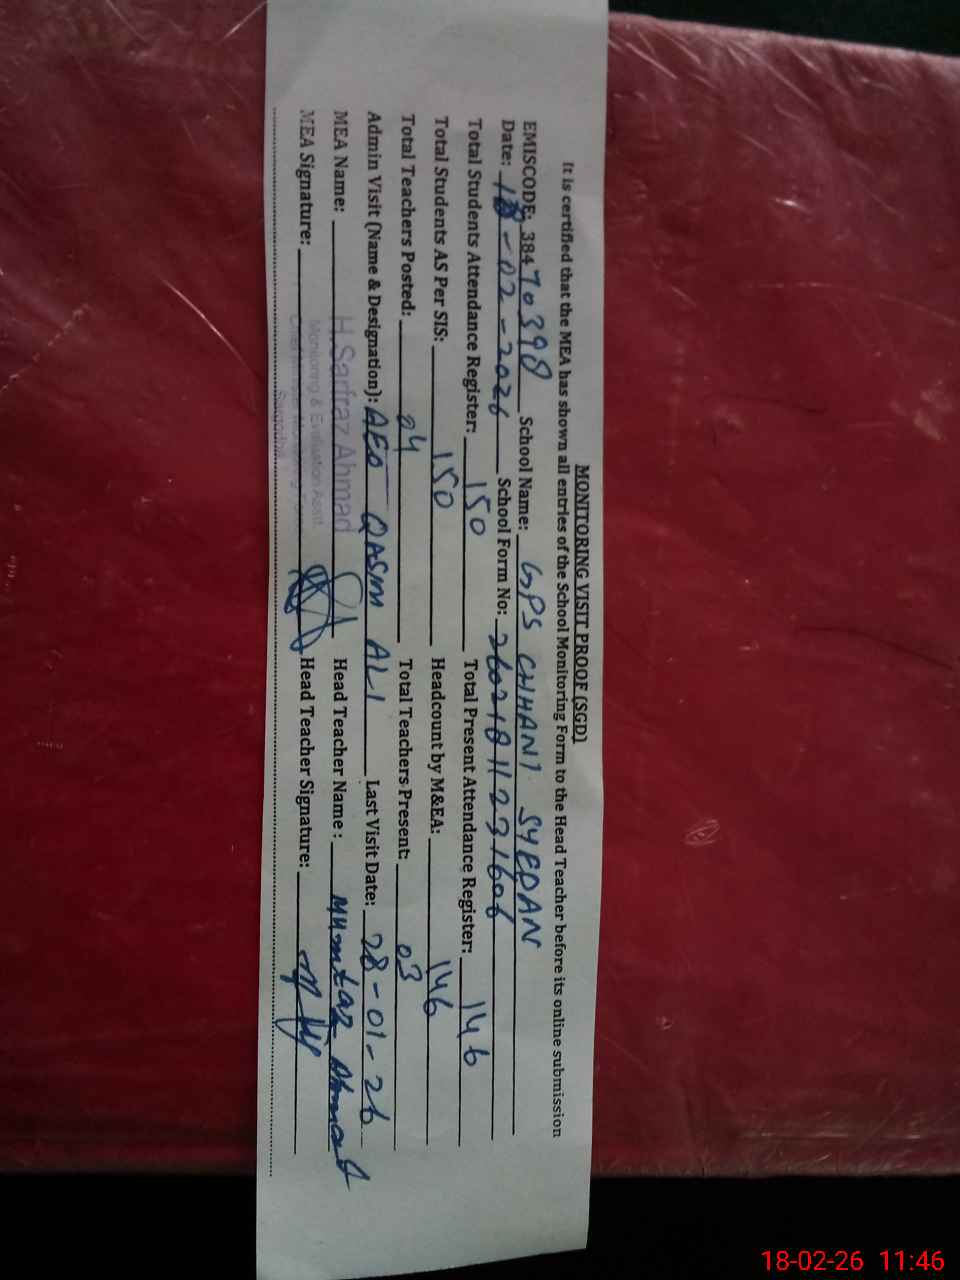 MONITORING VISIT PROOF (SGD)
It is certified that the MEA has shown all entries of the School Monitoring Form to the Head Teacher before its online submission
EMISCODE: 38470398 School Name: GPS CHHANI SYEDAN
Date: 18-02-2026 School Form No: 26021811231606
Total Students Attendance Register: 150 Total Present Attendance Register: 146
Total Students AS Per SIS: 150 Headcount by M&EA: 146
Total Teachers Posted: 04 Total Teachers Present: 03
Admin Visit (Name & Designation): AEO QASIM ALI Last Visit Date: 28-01-26
MEA Name: H.Sarfraz Ahmad Head Teacher Name : Mumtaz Ahmad
Monitoring & Evaluation Asstt.
MEA Signature: Head Teacher Signature:
Sargodha
18-02-26 11:46